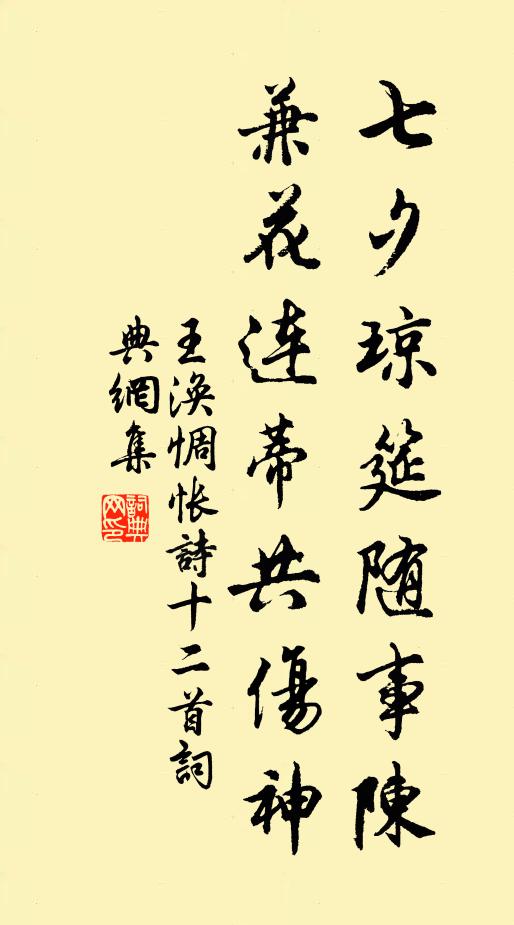 七夕琼筵随事陳
兼花連蒂共傷神
王渙惆怅詩十二首詞
典網集
詞典
网印